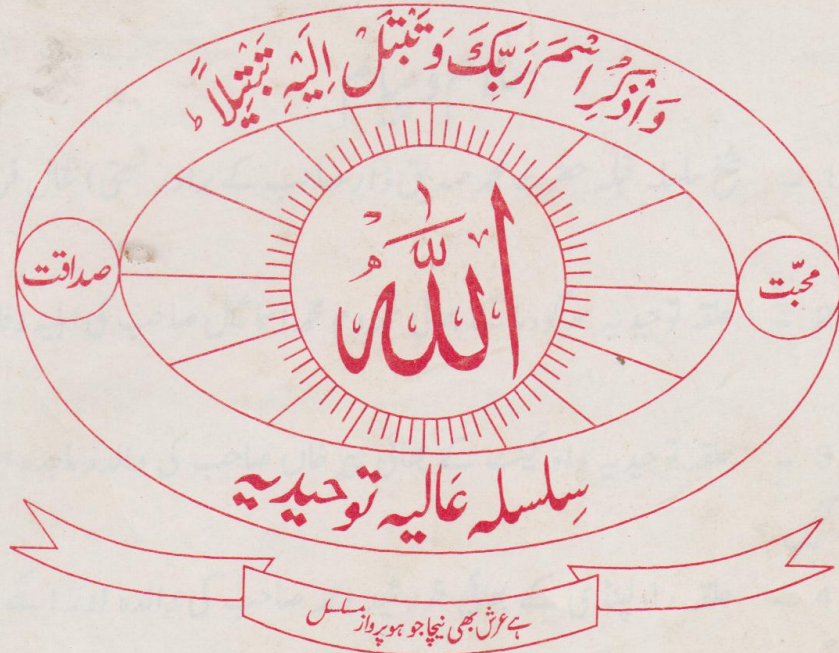 وَاذْكُرِ اسْمَ رَبِّكَ وَتَبَتَّلْ اِلَيْهِ تَبْتِيْلًا ط
محبّت
اللّٰہ
صداقت
سِلسلہ عَالیہ توحیدیہ
ہے عرش بھی نیچا جو ہو پرواز مسلسل